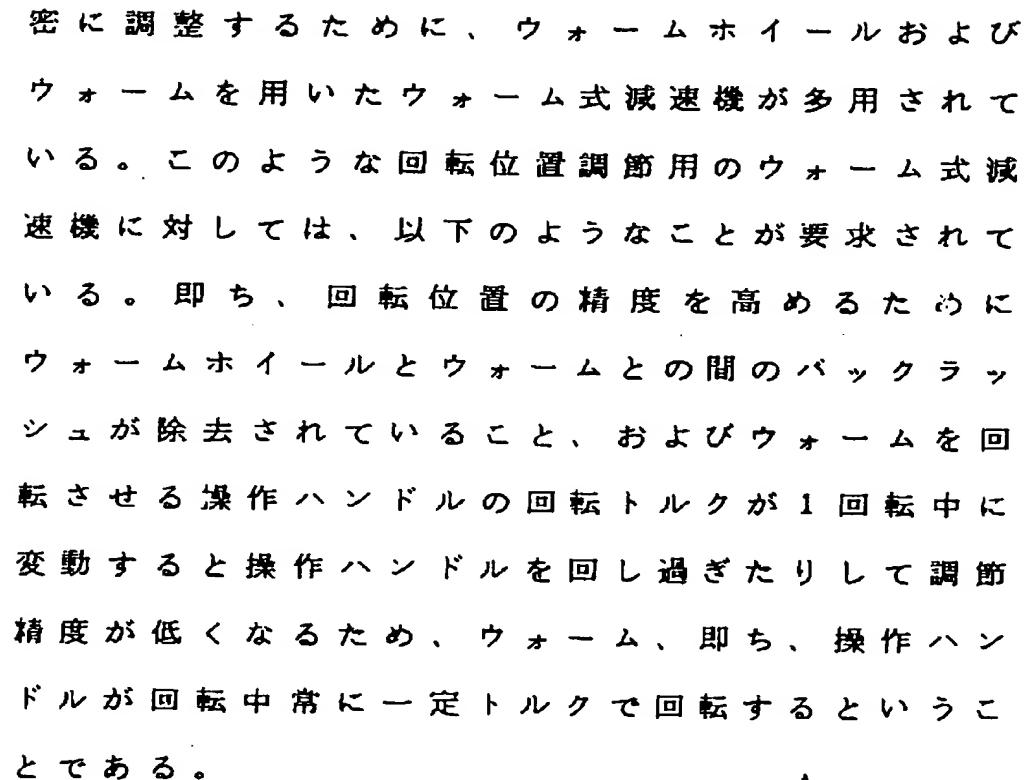 密に調整するために、ウォームホイールおよび
ウォームを用いたウォーム式減速機が多用されて
いる。このような回転位置調節用のウォーム式減
速機に対しては、以下のようなことが要求されて
いる。即ち、回転位置の精度を高めるために
ウォームホイールとウォームとの間のバックラッ
シュが除去されていること、およびウォームを回
転させる操作ハンドルの回転トルクが1回転中に
変動すると操作ハンドルを回し過ぎたりして調節
精度が低くなるため、ウォーム、即ち、操作ハン
ドルが回転中常に一定トルクで回転するというこ
とである。